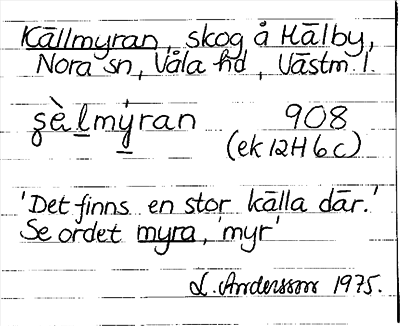 Källmyran, skog å Hälby,
Nora sn, Våla hd, Västm. l.
ṣè̀lmýran 908
(ek 12H 6c)
'Det finns en stor källa där.'
Se ordet myra, 'myr'
L. Andersson 1975.